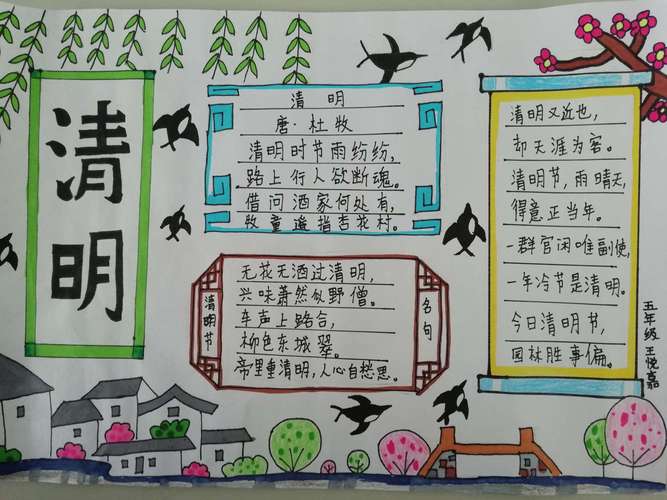 清明
清 明
唐·杜牧
清明时节雨纷纷,
路上行人欲断魂。
借问酒家何处有,
牧童遥指杏花村。
清明节
无花无酒过清明,
兴味萧然似野僧。
车声上路合,
柳色东城翠。
帝里重清明,人心自愁思。
名句
清明又近也,
却天涯为客。
清明节,雨晴天,
得意正当年。
一群官闲唯副使,
一年冷节是清明。
今日清明节,
园林胜事偏。
五年级 王悦嘉